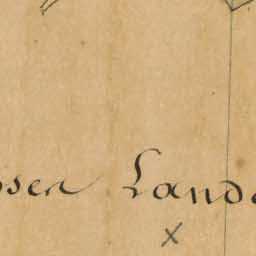 ssen Lande
x